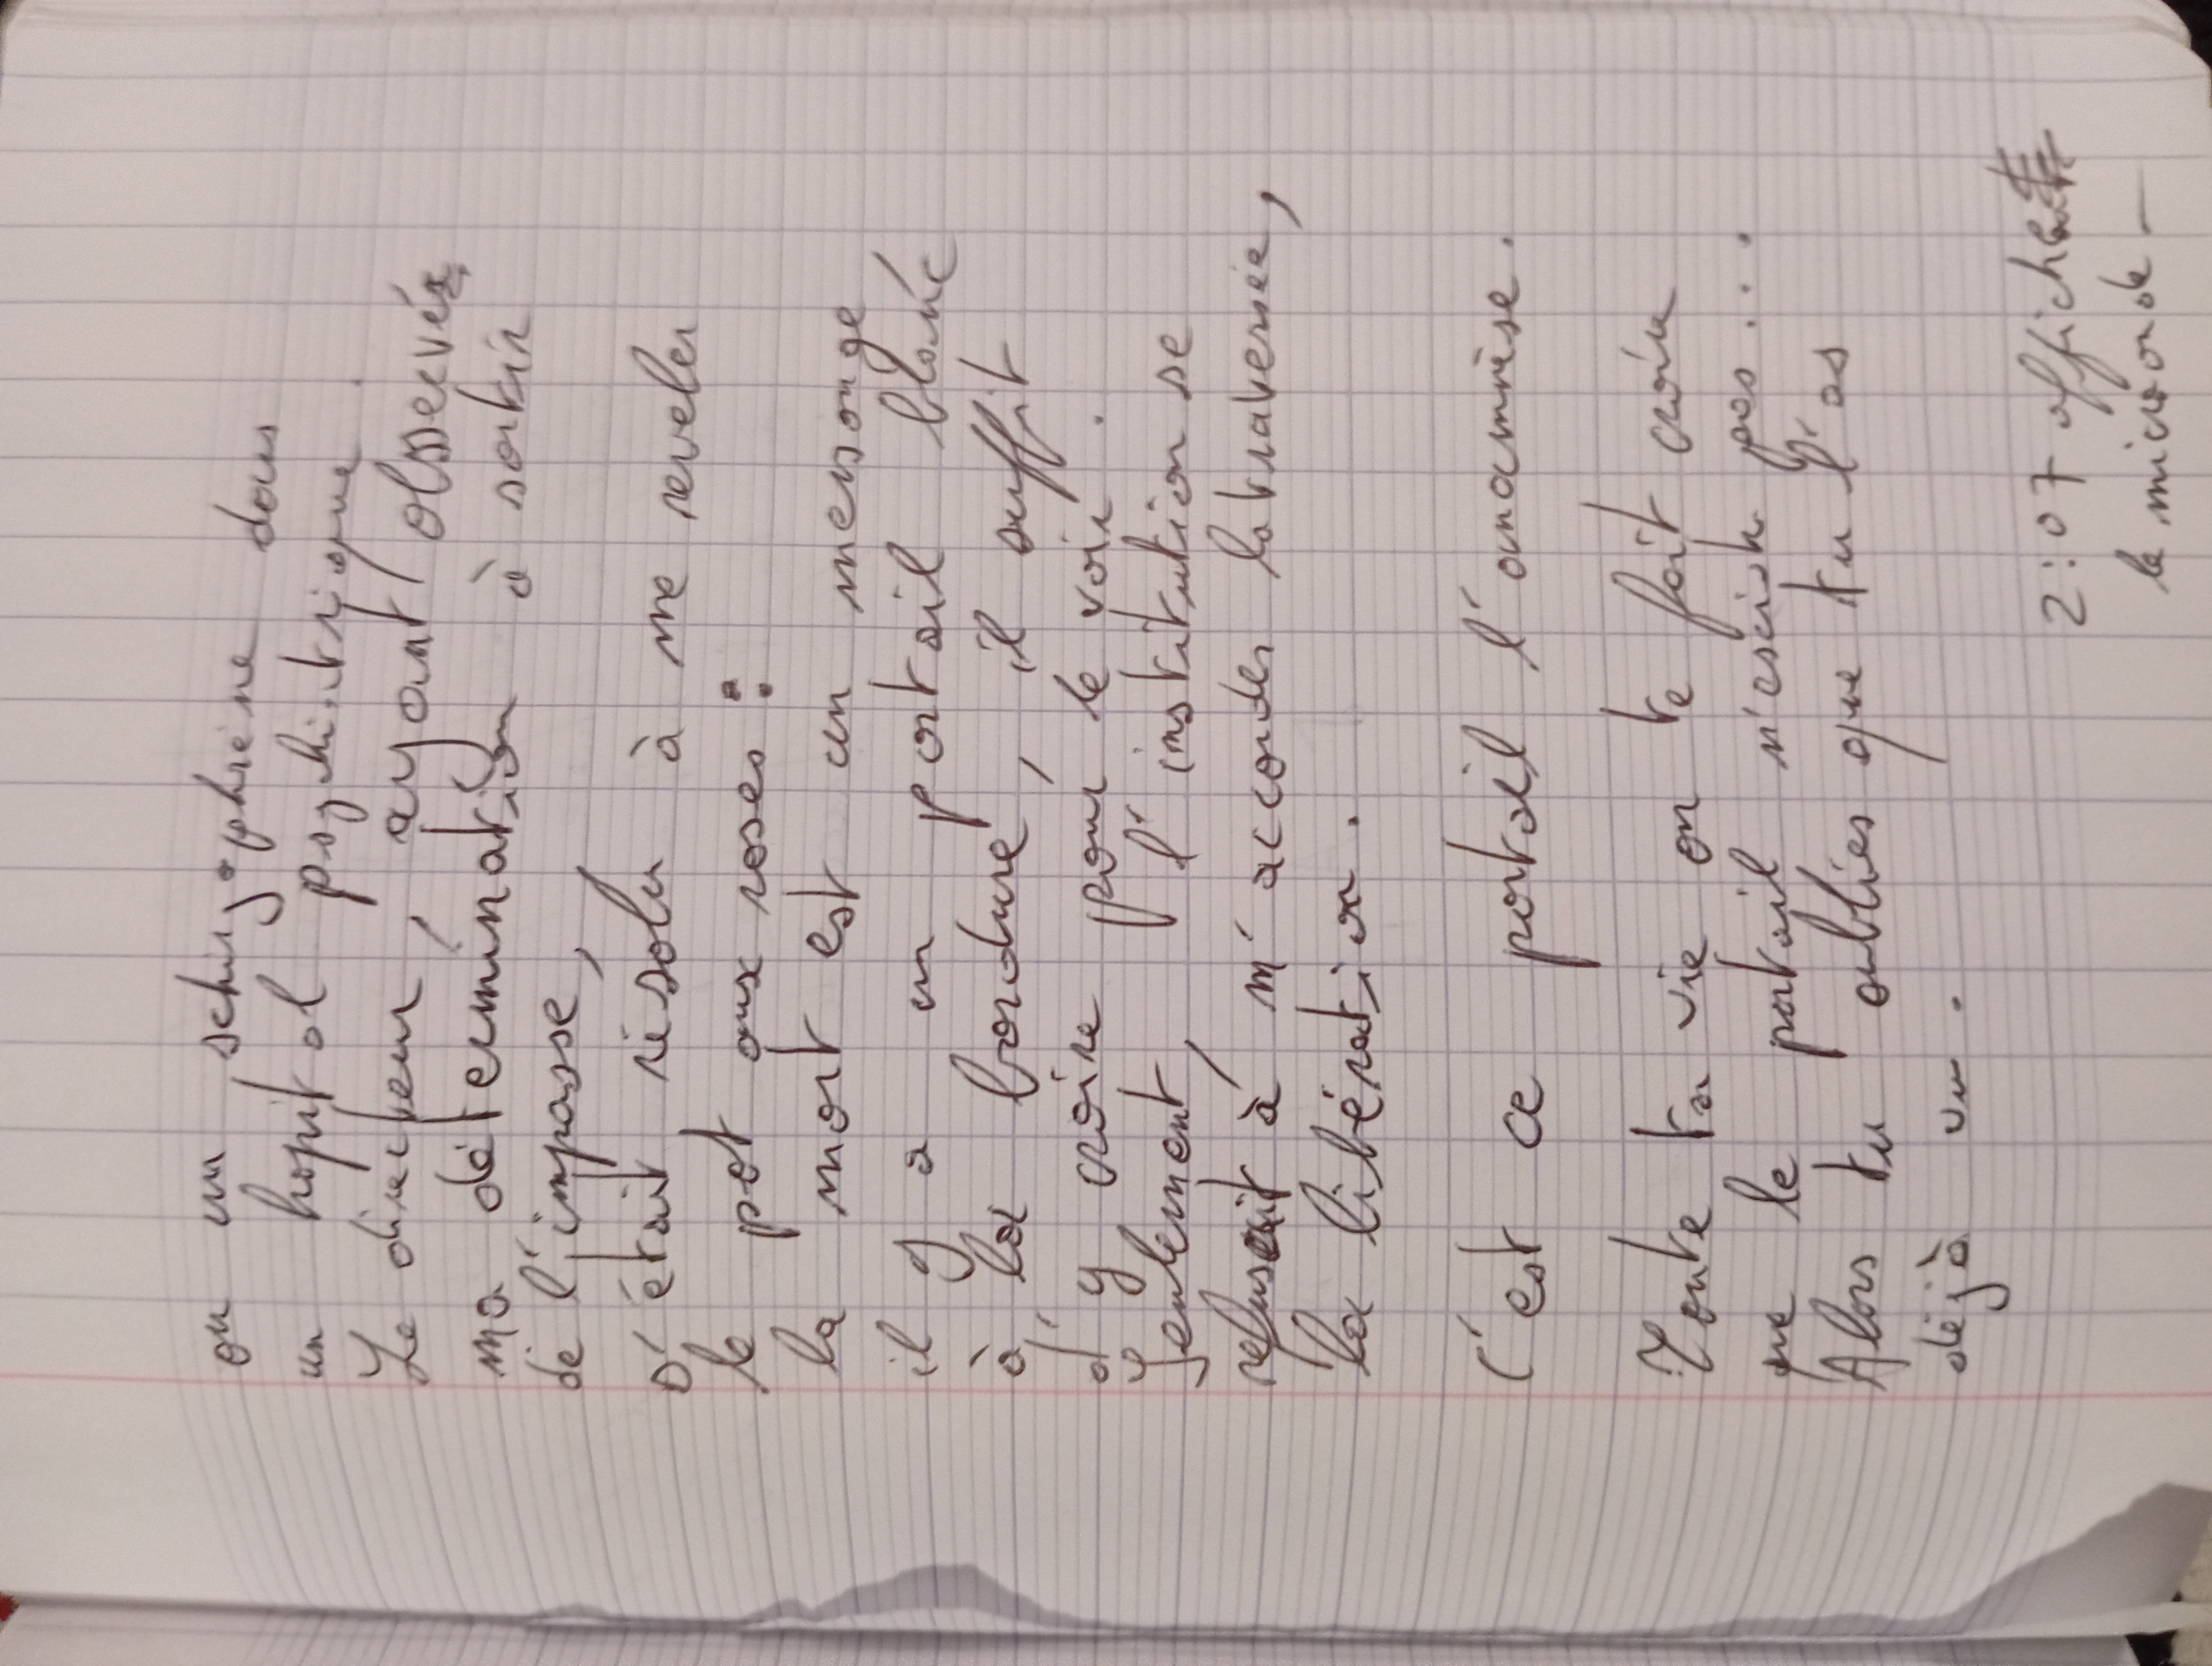 ou un schizophrène dans
un hopital psychiatrique.
Le directeur, ayant observé
ma détermination à sortir
de l'impasse,
s'était résolu à me reveler
le pot aux roses :
la mort est un mensonge
il y a un portail blanc
à la bordure, il suffit
d'y croire pour le voir.
Seulement, l'institution se
refusait à m'accorder la traversée,
la libération.
C'est ce portail l'anamnèse.
Toute ta vie on te fait croire
que le portail n'existe pas...
Alors tu oublies que tu l'as
déjà vu.
2:07 affiche
le microonde -